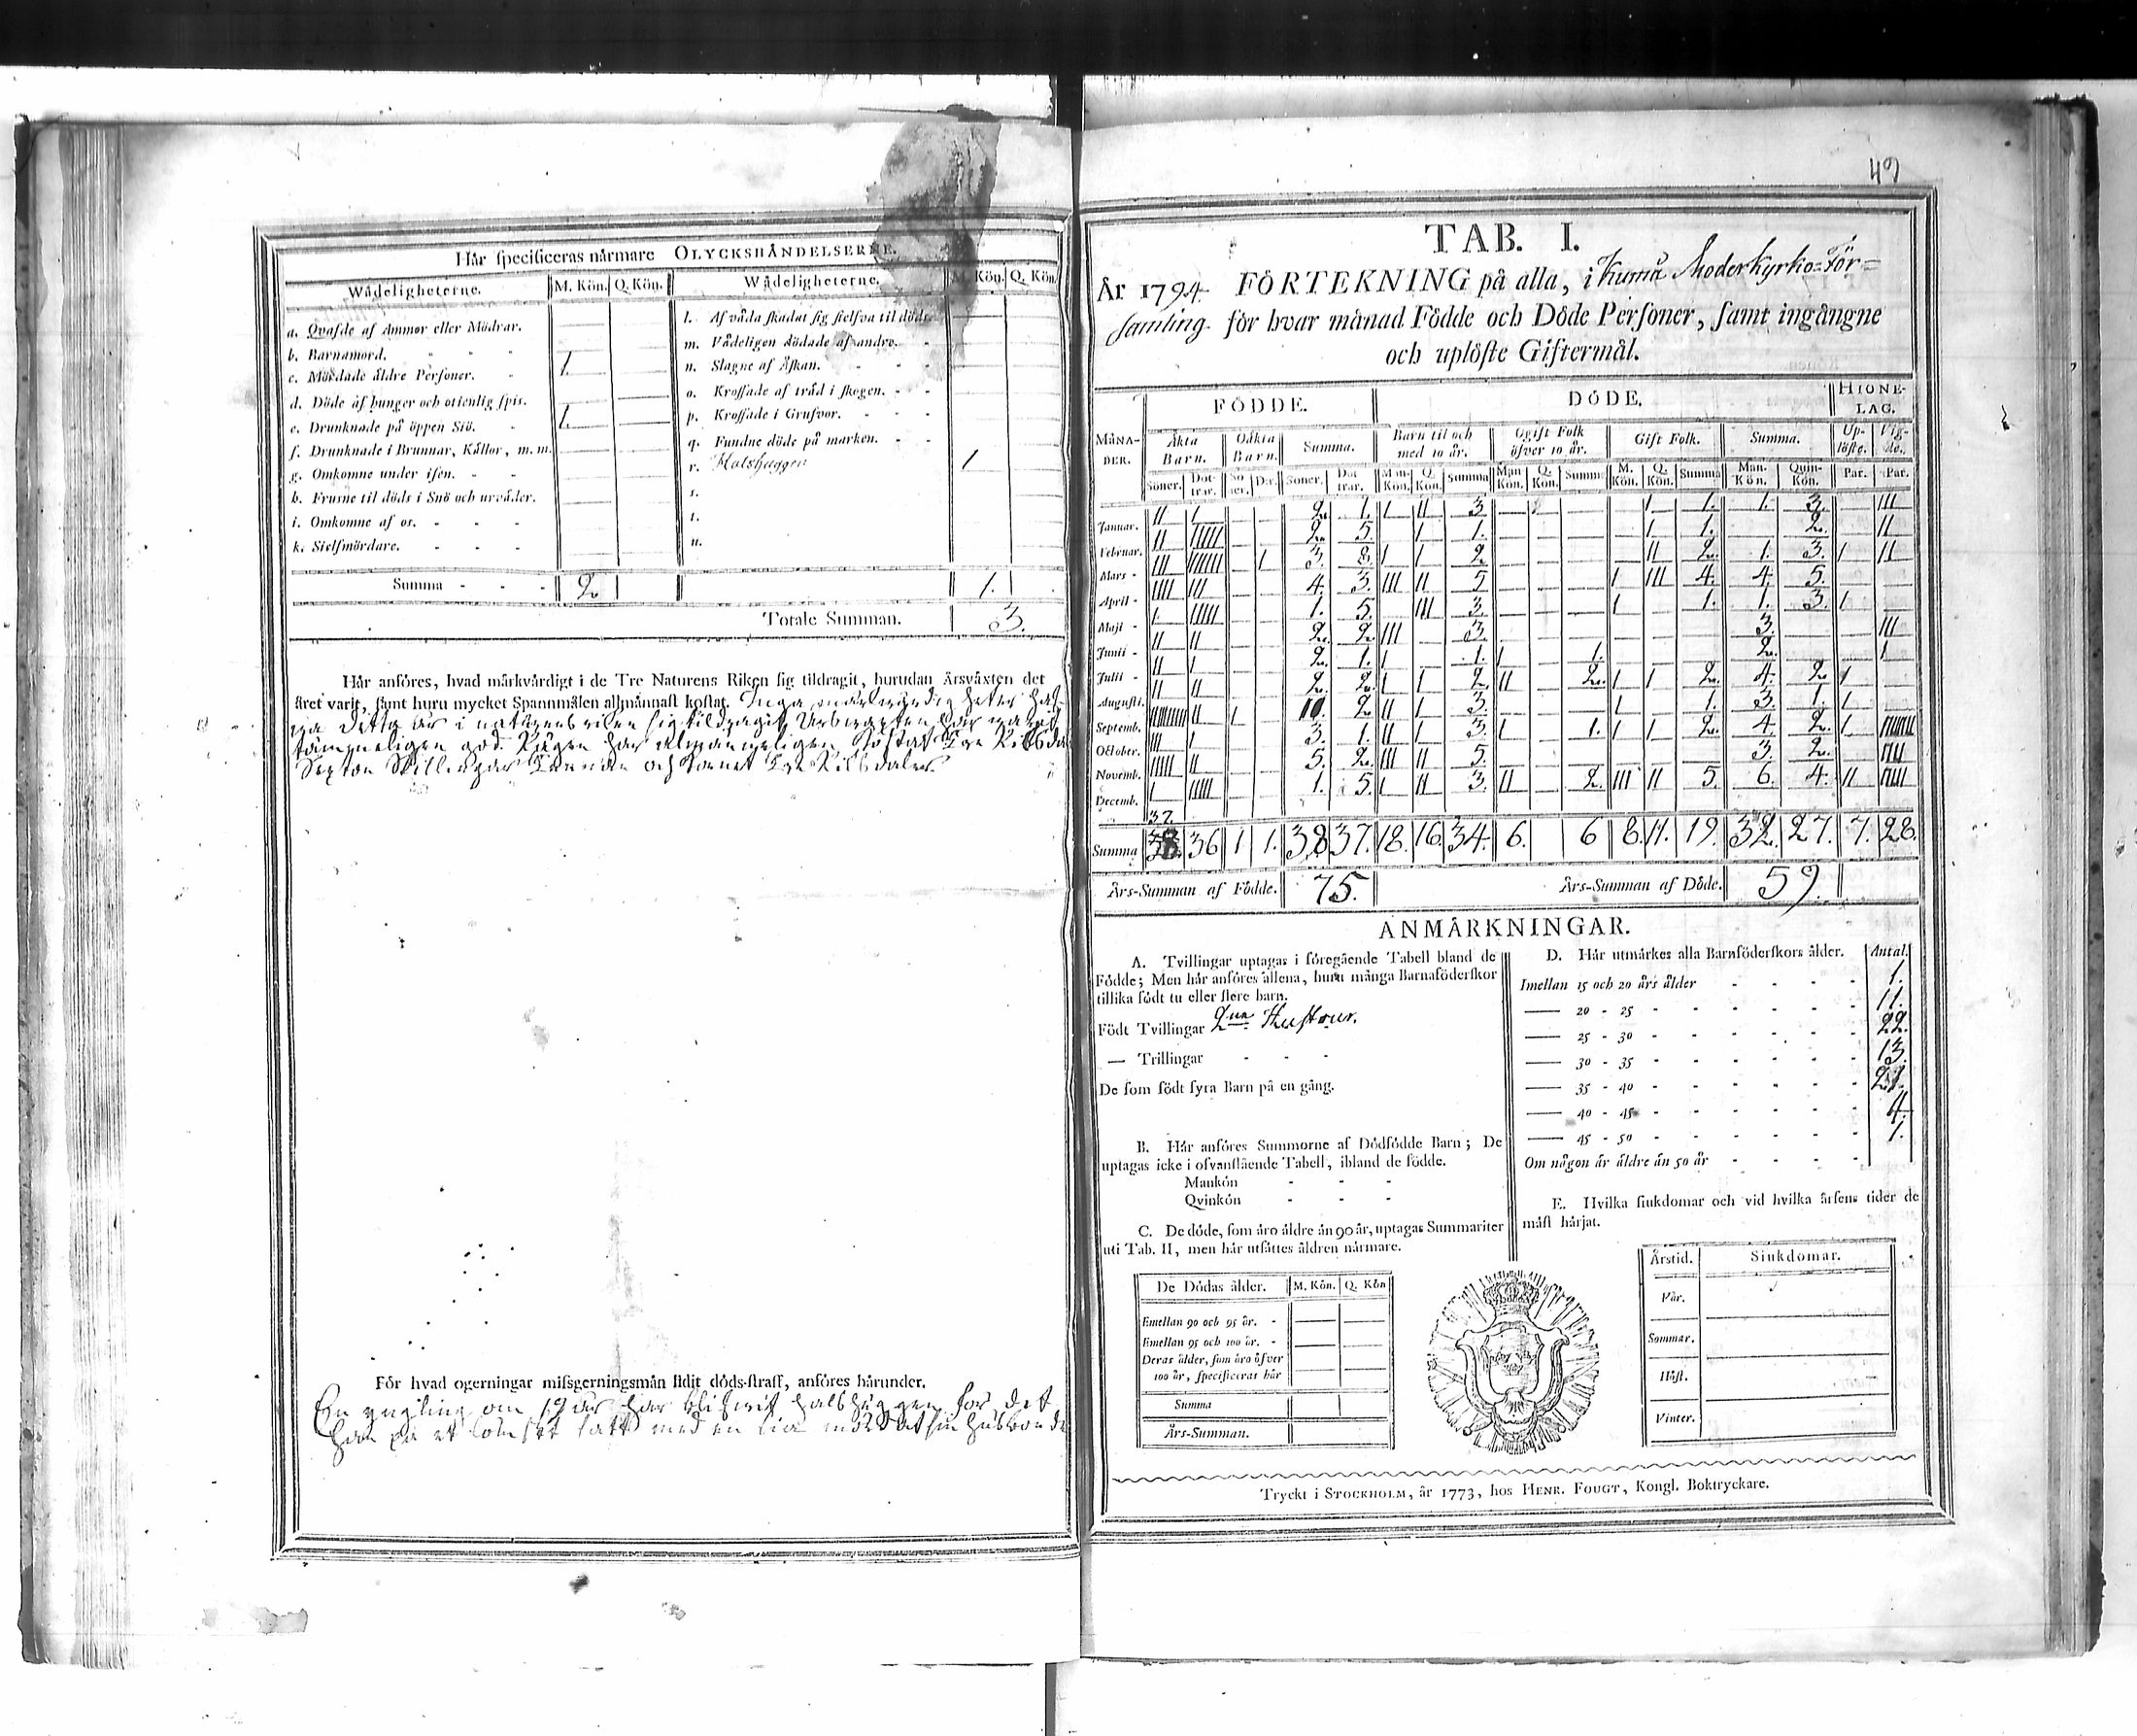 Här specificeras närmare OLYCKSHÄNDELSERNE.
Wådeligheterne. M. Kön. Q. Kön. Wådeligheterne. M. Kön. Q. Kön.
a. Qvafde af Ammor eller Mödrar.
b. Barnamord.
c. Mördade äldre Personer. 1.
d. Döde af hunger och otienlig spis.
e. Drunknade på öppen Siö. 1.
f. Drunknade i Brunnar, Källor, m. m.
g. Omkomne under isen.
h. Frusne til döds i Snö och urväder.
i. Omkomne af os.
k. Sielfmördare.
l. Af våda skadat sig sielfva til döds.
m. Vådeligen dödade af andre.
n. Slagne af Åskan.
o. Krossade af träd i skogen.
p. Krossade i Grufvor.
q. Fundne döde på marken.
r. Halshuggen 1
s.
t.
u.
Summa 2 1.
Totale Summan. 3.
Här anföres, hvad märkvärdigt i de Tre Naturens Riken sig tildragit, hurudan Årsväxten det
året varit, samt huru mycket Spannmålen allmännast kostat. Inga märkwärdigheter haf-
wa detta år i naturens riken sig tildragit Årswäxten har warit
tämmeligen god. Rågen har almänneligen kostat
Sexton Skillingar Tunnan och Kornet Riksdaler
För hvad ogerningar missgerningsmän lidit döds-straff, anföres härunder.
En yngling om 19 år har blifwit halshuggen för det
han på et sätt med en mördat sin husbonde
49
TAB. I.
År 1794 FÖRTEKNING på alla, i Kumå Moderkyrko-För-
samling för hvar månad Födde och Döde Personer, samt ingångne
och uplöste Giftermål.
MÅNADER. FÖDDE. DÖDE. HIONELAG.
Äkta Barn. Oäkta Barn. Summa. Barn til och med 10 år. Ogift Folk öfver 10 år. Gift Folk. Summa. Uplöste. Vigde.
Söner. Döttrar. Söner. D:r. Söner. Döttrar. Man-Kön. Q. Kön. Summa Man Kön. Q. Kön. Summa M. Kön. Q. Kön. Summa Man-Kön. Quin-Kön. Par. Par.
Januar. II I 2. 1. I II 3 I 1. 1. 3. III
Februar. II IIIII 2. 5. I 1. I 1. 2. II
Mars III IIIIIII I 3. 8. I I 2 II 2. 1. 3. I II
April IIII III 4. 3. III II 5 I III 4. 4. 5.
Maji I. IIIII 1. 5. III 3. I 1. 1. 3. I
Junii II II 2. 2. III 3. 3. III
Julii II I 2. 1. I 1. I 1. 2. I
Augusti. II II 2. 2. I I 2. II 2. I I 2. 4. 2. I
Septemb. IIIIIIIII II I 10. 2. II I 3. I 1. 3. 1. I
October. III I 3. 1. II I 3. I 1. I I 2. 4. 2. I
Novemb. IIIII II 5. 2. III II 5. 3. 2.
Decemb. I IIIII 1. 5. I II 3. II 2. III II 5. 6. 4. II
37.
Summa 36 1 1. 38 37. 18. 16. 34. 6. 6 8. 11. 19. 32. 27. 7. 28.
Års-Summan af Födde. 75. Års-Summan af Döde. 59.
ANMÄRKNINGAR.
A. Tvillingar uptagas i föregående Tabell bland de
Födde; Men här anföres allena, huru många Barnaföderskor
tillika födt tu eller flere barn.
Födt Tvillingar 2ne Hustrur.
— Trillingar
De som födt fyra Barn på en gång.
B. Här anföres Summorne af Dödfödde Barn; De
uptagas icke i ofvanstående Tabell, ibland de födde.
Mankön
Qvinkön
C. De döde, som äro äldre än 90 år, uptagas Summariter
uti Tab. II, men här utsättes åldren närmare.
De Dödas ålder. M. Kön. Q. Kön
Emellan 90 och 95 år.
Emellan 95 och 100 år.
Deras ålder, som äro öfver
100 år, specificeras här
Summa
Års-Summan.
D. Här utmärkes alla Barnföderskors ålder. Antal.
Imellan 15 och 20 års ålder 1.
— 20 - 25 11.
— 25 - 30 22.
— 30 - 35 13.
— 35 - 40 21.
— 40 - 45 4.
— 45 - 50 1.
Om någon är äldre än 50 år
E. Hvilka siukdomar och vid hvilka årsens tider de
mäst härjat.
Årstid. Siukdomar.
Vår.
Sommar.
Höst.
Vinter.
Tryckt i STOCKHOLM, år 1773, hos HENR. FOUGT, Kongl. Boktryckare.